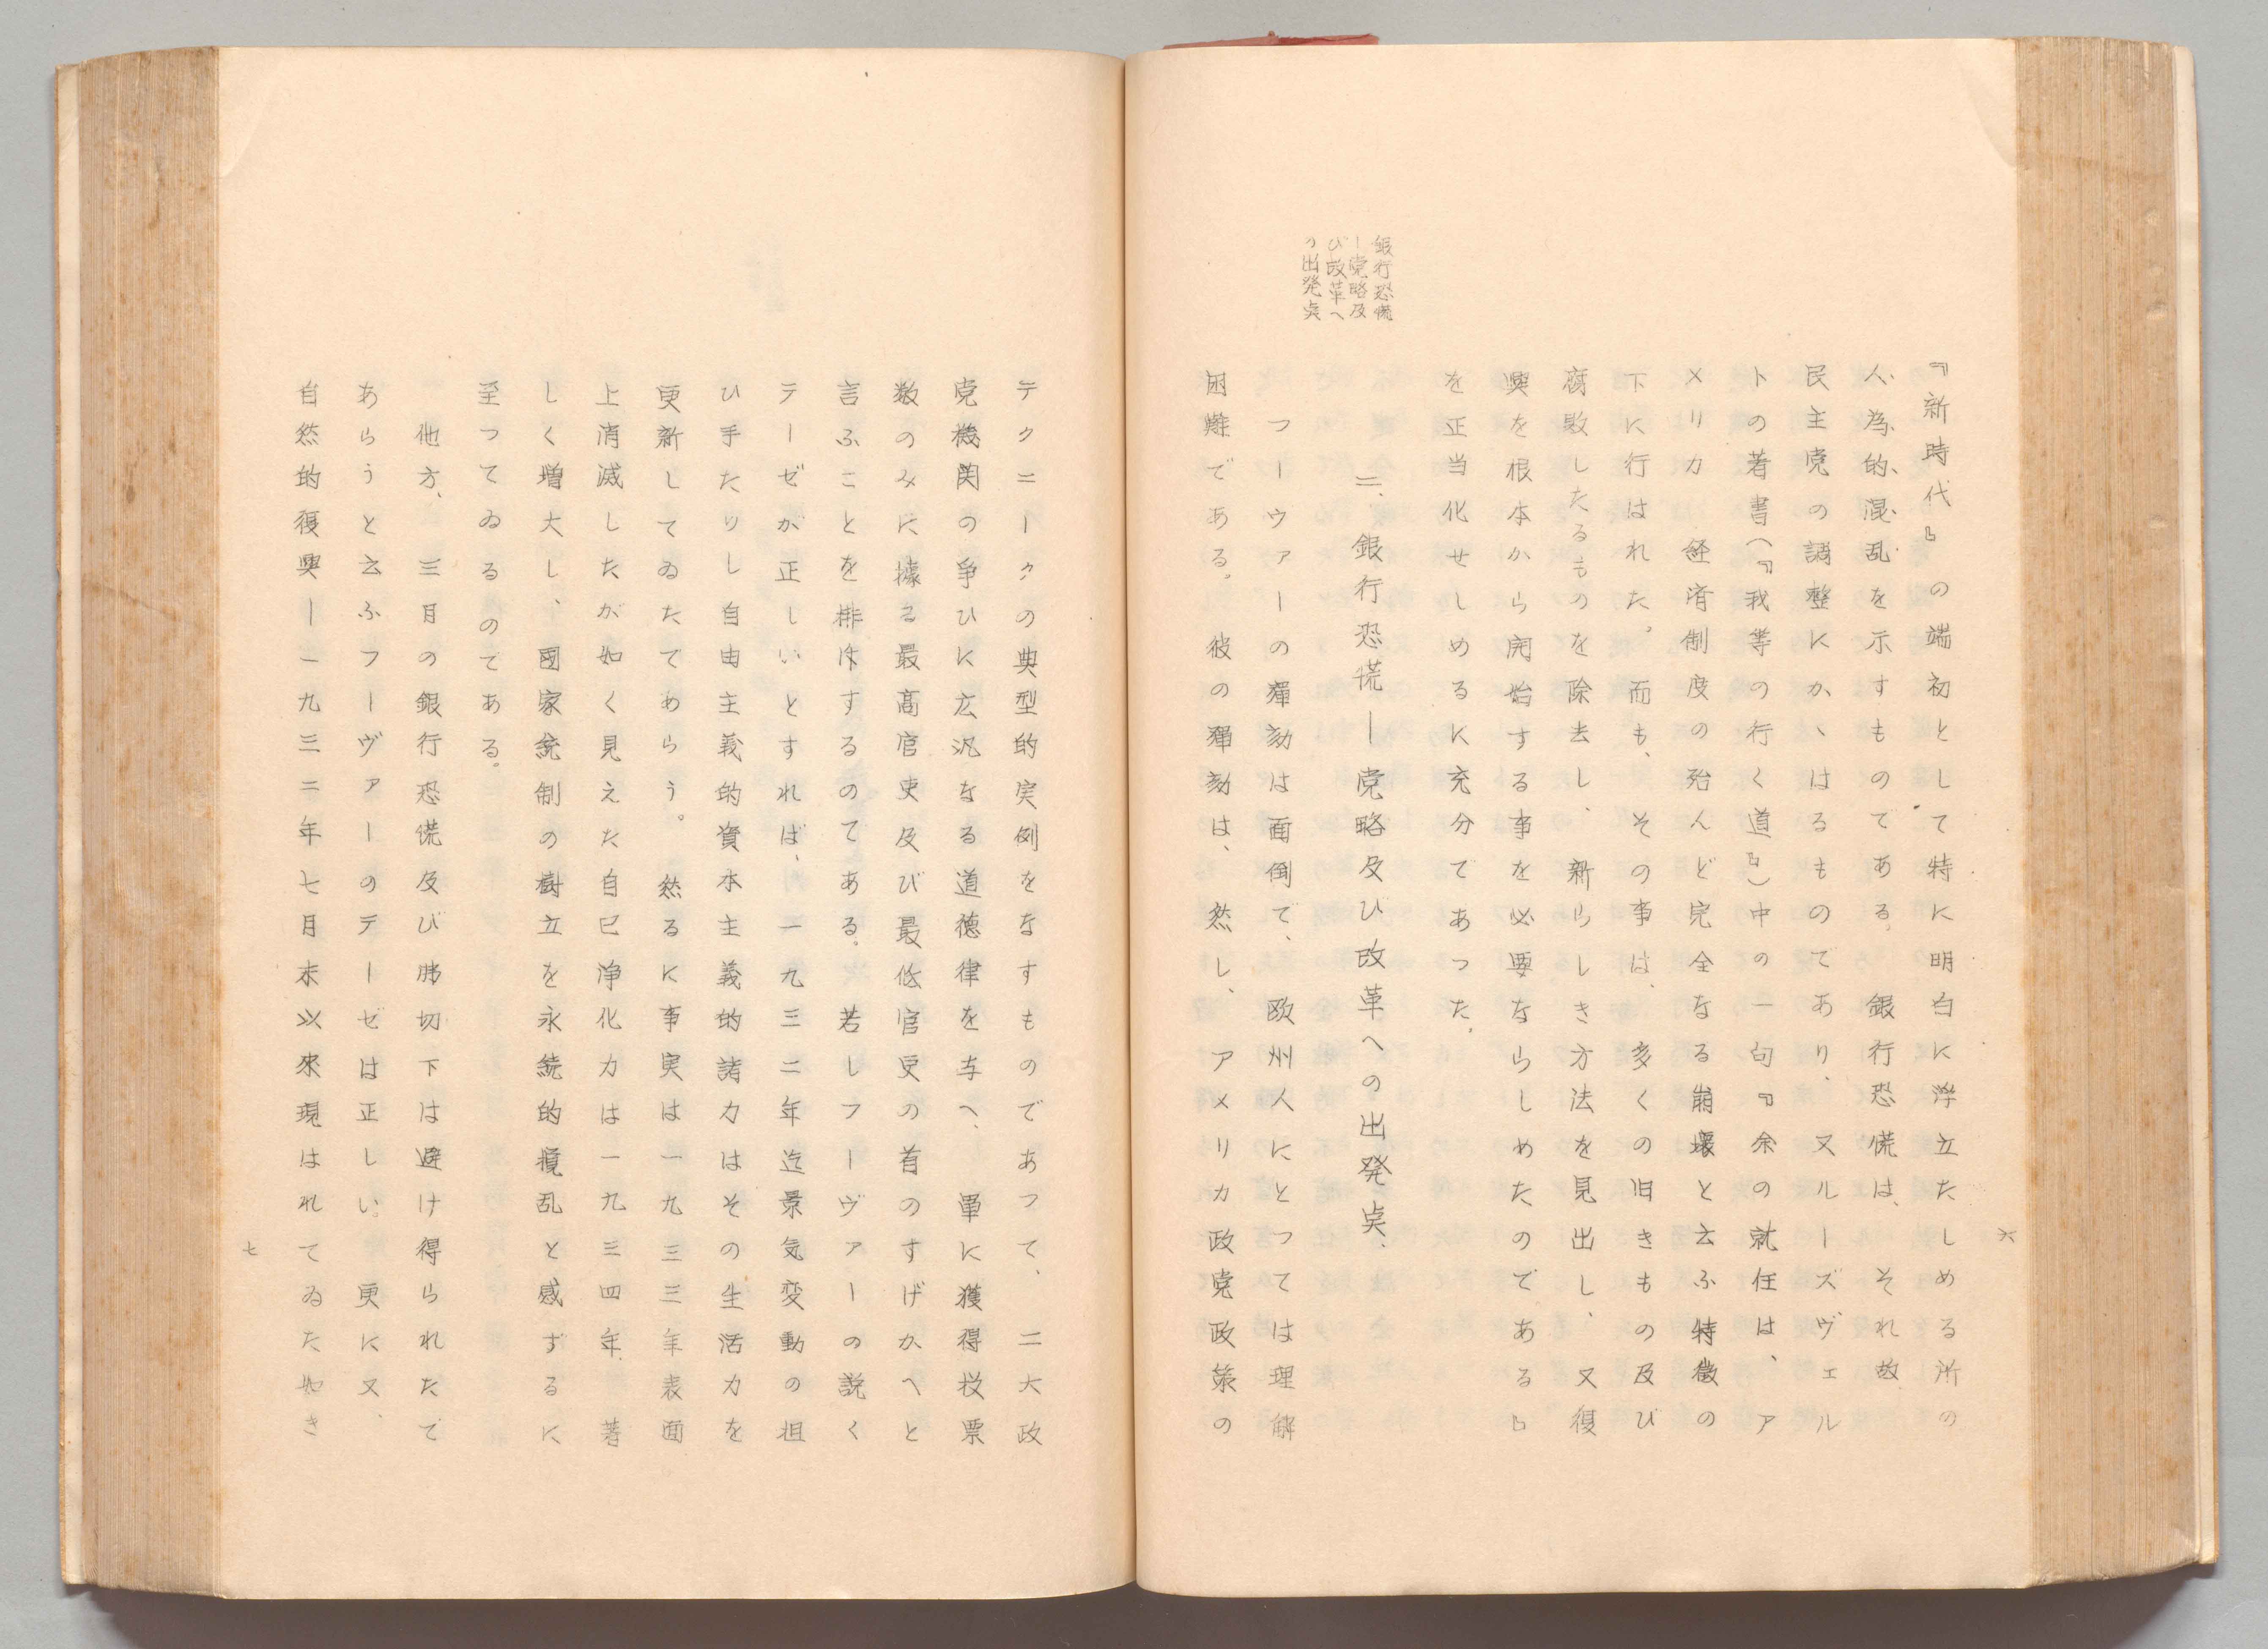 六
『新時代』の端初として特に明白に浮立たしめる所の
人為的混乱を示すものである。銀行恐慌は、それ故
民主党の調整にかゝはるものであり、又ルーズヴェル
トの著書(『我等の行く道』)中の一句『余の就任は、ア
メリカ　経済制度の殆んど完全なる崩壊と云ふ特徴の
下に行はれた。而も、その事は、多くの旧きもの及び
腐敗したるものを除去し、新らしき方法を見出し、又復
興を根本から開始する事を必要ならしめたのである』
を正当化せしめるに充分であった。
銀行恐慌
―党略及
び改革へ
の出発点
二、銀行恐慌―党略及び改革への出発点、
フーヴァーの弾劾は面倒で、欧州人にとつては理解
困難である。彼の弾劾は、然し、アメリカ政党政策の
テクニークの典型的実例をなすものであつて、二大政
党機関の争ひに広汎なる道徳律を与へ、単に獲得投票
数のみに據る最高官吏及び最低官吏の首のすげかへと
言ふことを排斥するのである。若しフーヴァーの説く
テーゼが正しいとすれば、一九三二年迄景気変動の担
ひ手たりし自由主義的資本主義的諸力はその生活力を
更新してゐたであらう。然るに事実は一九三三年表面
上消滅したが如く見えた自己浄化力は一九三四年著
しく増大し、国家統制の樹立を永続的攪乱と感ずるに
至つてゐるのである。
他方、三月の銀行恐慌及び弗切下は避け得られたで
あらうと云ふフーヴァーのテーゼは正しい。更に又、
自然的復興―一九三二年七月末以来現はれてゐた如き
七